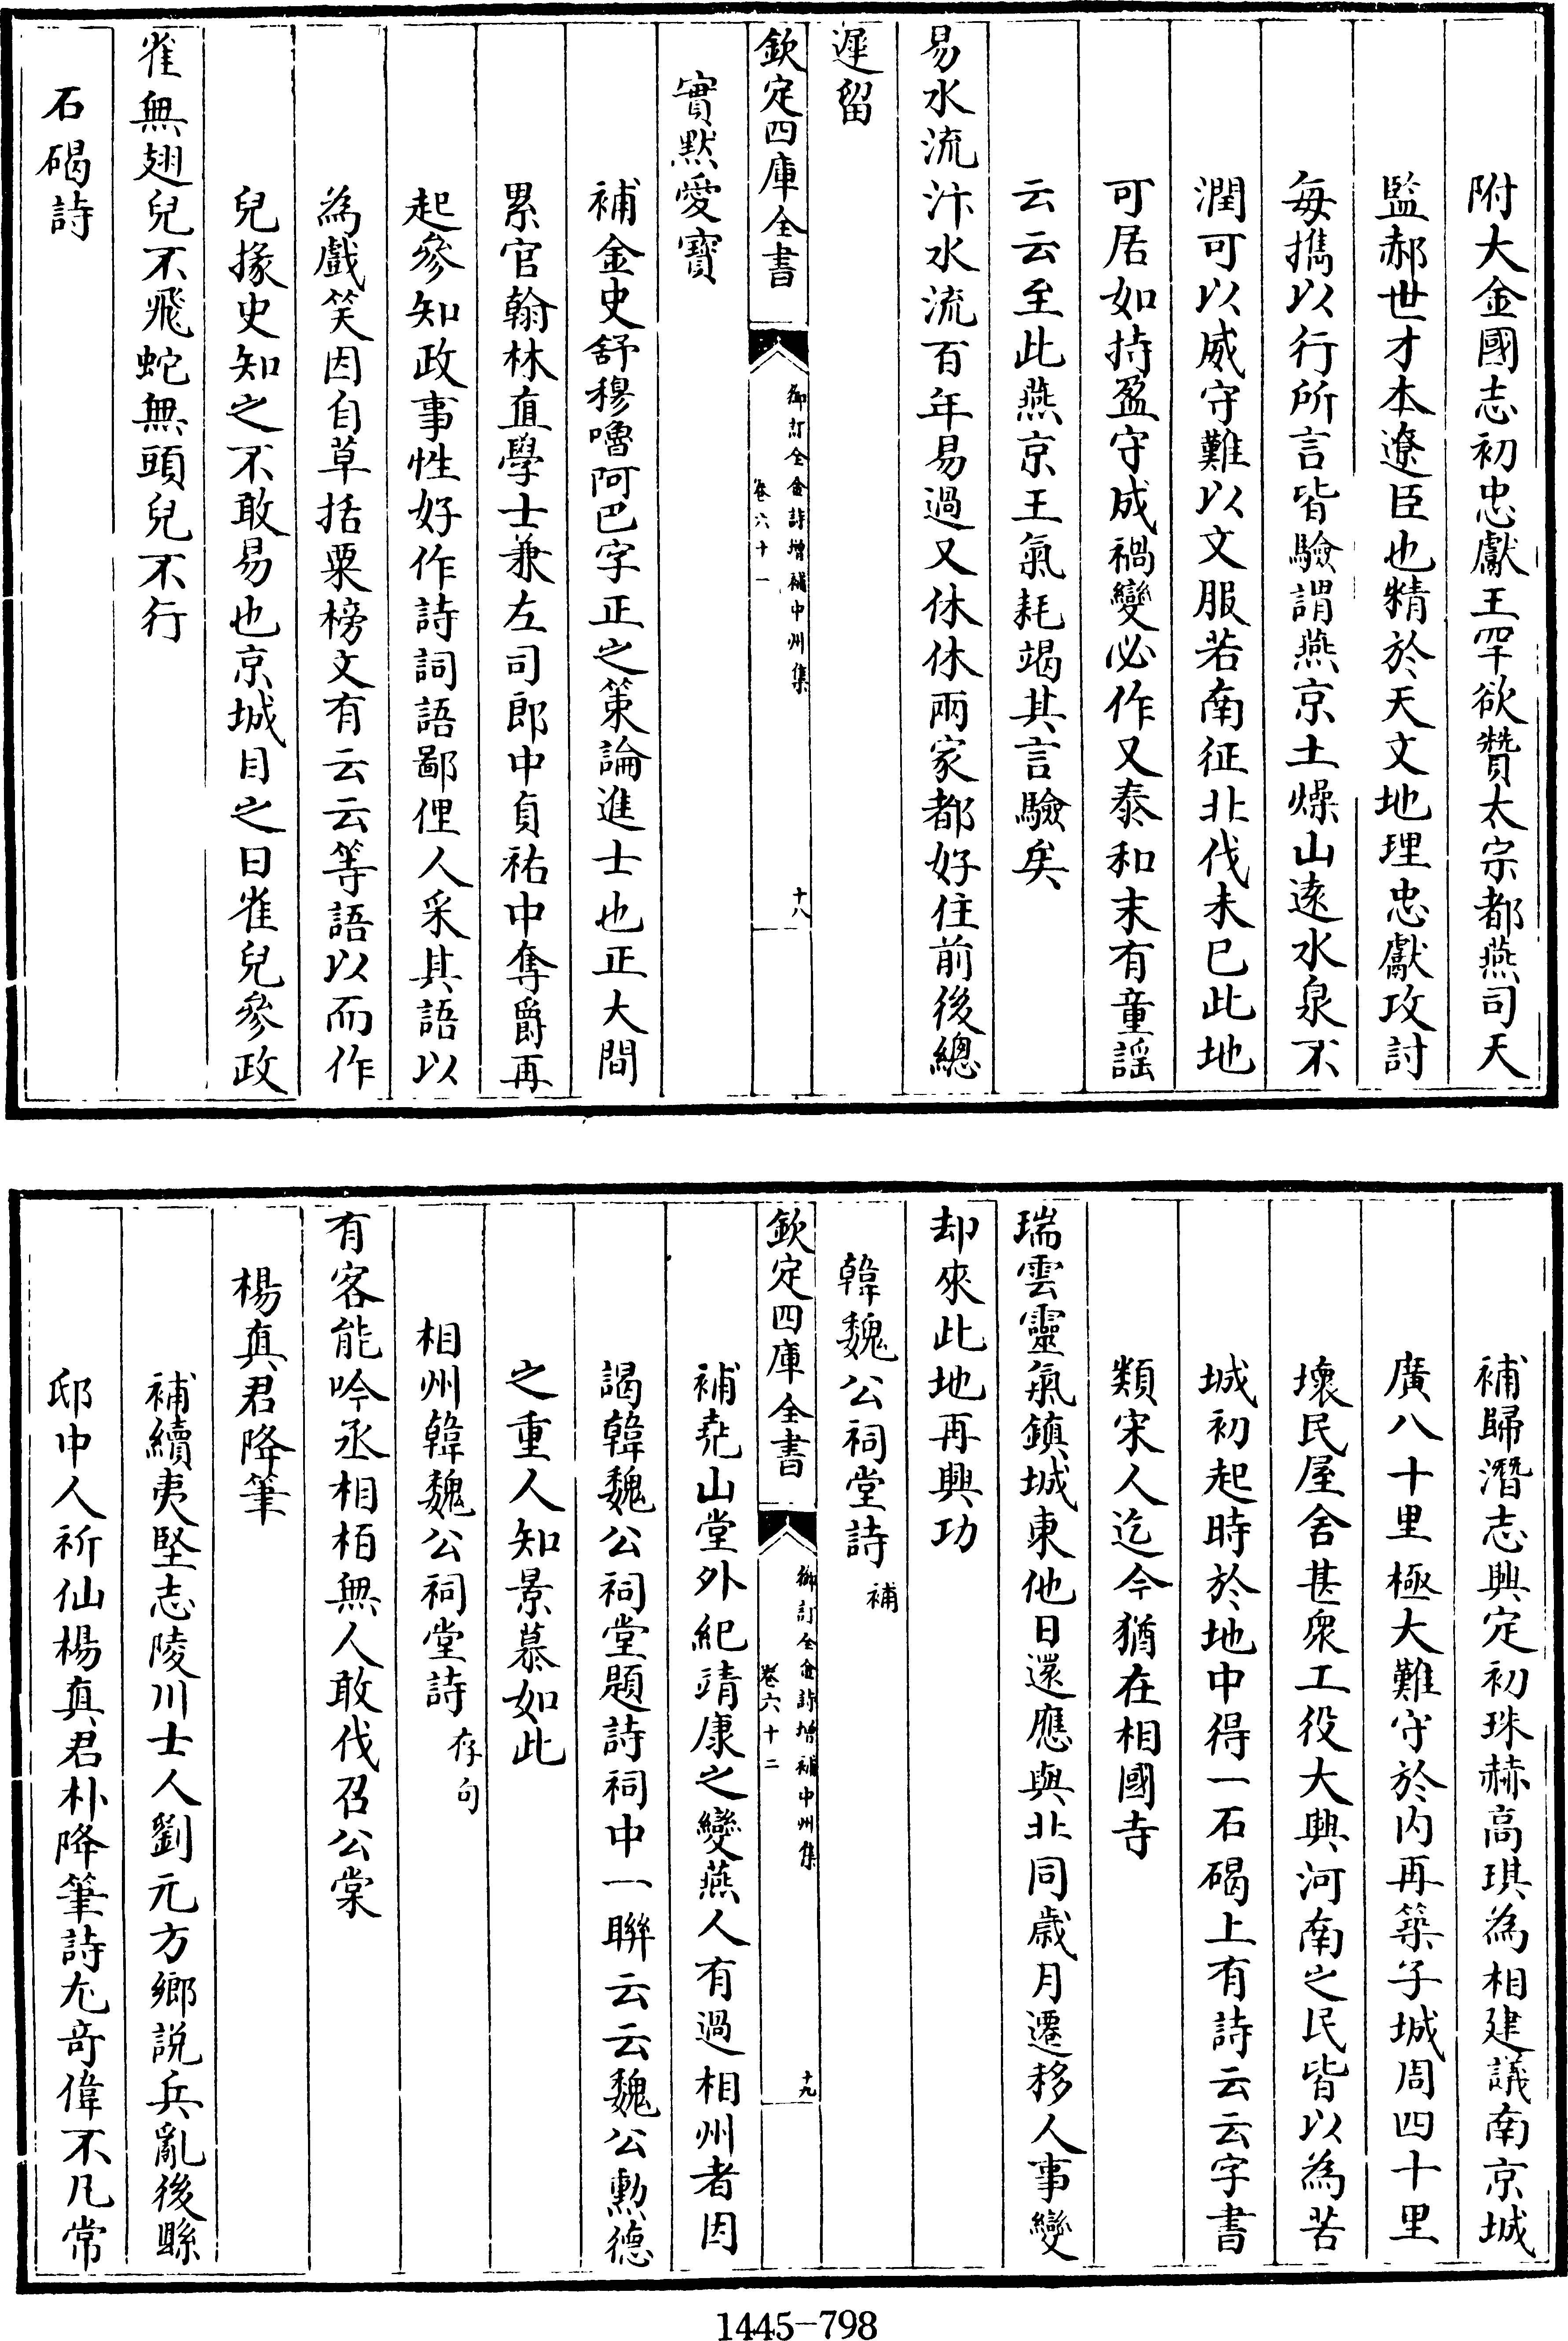 附大金國志初忠獻王罕欲贊太宗都燕司天
監郝世才本遼臣也精於天文地理忠獻攻討
每攜以行所言皆驗謂燕京土燥山遠水泉不
潤可以威守難以文服若南征北伐未已此地
可居如持盈守成禍變必作又泰和末有童謡
云云至此燕京王氣耗竭其言驗矣
易水流汴水流百年易過又休休兩家都好住前後總
遲留
欽定四庫全書
御訂全金詩增補中州集
卷六十一
十八
實黙愛寳
補金史舒穆嚕阿巴字正之策論進士也正大間
累官翰林直學士兼左司郎中貞祐中奪爵再
起參知政事性好作詩詞語鄙俚人采其語以
為戲笑因自草括粟榜文有云云等語以而作
兒掾史知之不敢易也京城目之曰雀兒參政
雀無翅兒不飛蛇無頭兒不行
石碣詩
補歸潛志興定初珠赫高琪為相建議南京城
廣八十里極大難守於内再築子城周四十里
壞民屋舍甚衆工役大興河南之民皆以為苦
城初起時於地中得一石碣上有詩云云字書
類宋人迄今猶在相國寺
瑞雲靈氣鎮城東他日還應與北同歳月遷移人事變
却來此地再興功
韓魏公祠堂詩補
欽定四庫全書
御訂全金詩增補中州集
卷六十二
十九
補堯山堂外紀靖康之變燕人有過相州者因
謁韓魏公祠堂題詩祠中一聯云云魏公勲德
之重人知景慕如此
相州韓魏公祠堂詩存句
有客能吟丞相栢無人敢伐召公棠
楊真君降筆
補續夷堅志陵川士人劉元方鄉説兵亂後縣
邸中人祈仙楊真君朴降筆詩尤奇偉不凡常
1445-798